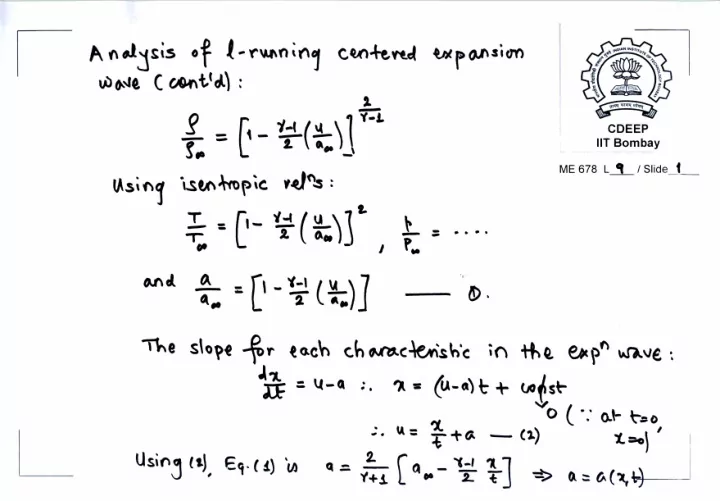 Analysis of l-running centered expansion
wave (cont'd):
CDEEP
IIT Bombay
ME 678 L 9 / Slide 1
ρ/ρ∞ = [1 - γ-1/2 (u/a∞)]^(2/γ-1)
Using isentropic relⁿs:
T/T∞ = [1 - γ-1/2 (u/a∞)]², p/p∞ = ....
and a/a∞ = [1 - γ-1/2 (u/a∞)] —— ①.
The slope for each characteristic in the expⁿ wave:
dx/dt = u-a ∴ x = (u-a)t + const
0 (∵ at t=0, x=0)
∴ u = x/t + a — (2)
Using (2), Eq. (1) is a = 2/γ+1 [a∞ - γ-1/2 x/t] ⇒ a = a(x,t)